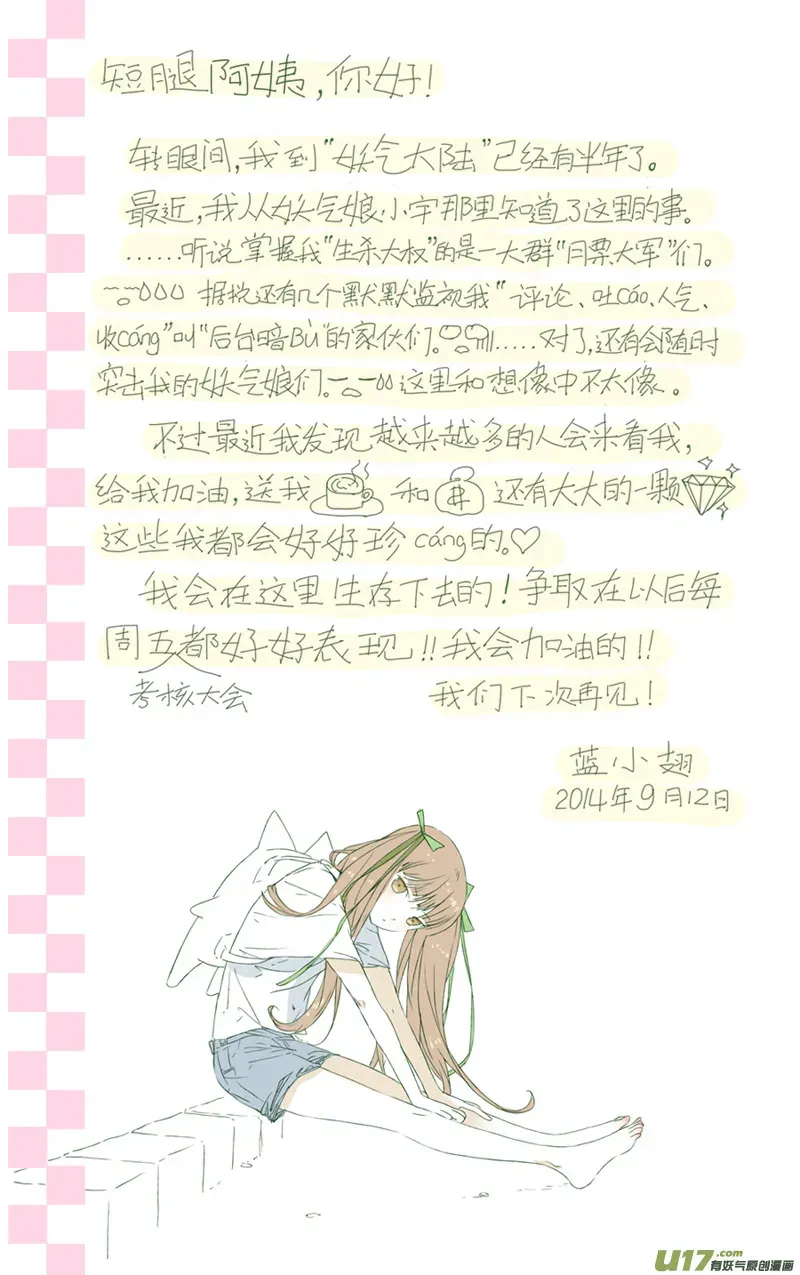 短腿阿姨，你好！
转眼间，我到“妖气大陆”已经有半年了。
最近，我从妖气娘小宇那里知道了这里的事。
……听说掌握我“生杀大权”的是一大群“月票大军”们。
据说还有几个默默监视我“评论、吐cáo、人气、
收cáng”叫“后台暗Bù”的家伙们。……对了，还有会随时
突击我的妖气娘们。这里和想像中不太像。
不过最近我发现越来越多的人会来看我，
给我加油，送我 和 还有大大的一颗
这些我都会好好珍cáng的。♡
我会在这里生存下去的！争取在以后每
周五都好好表现！！我会加油的！！
考核大会
我们下次再见！
蓝小翅
2014年9月12日
U17.com
有妖气原创漫画